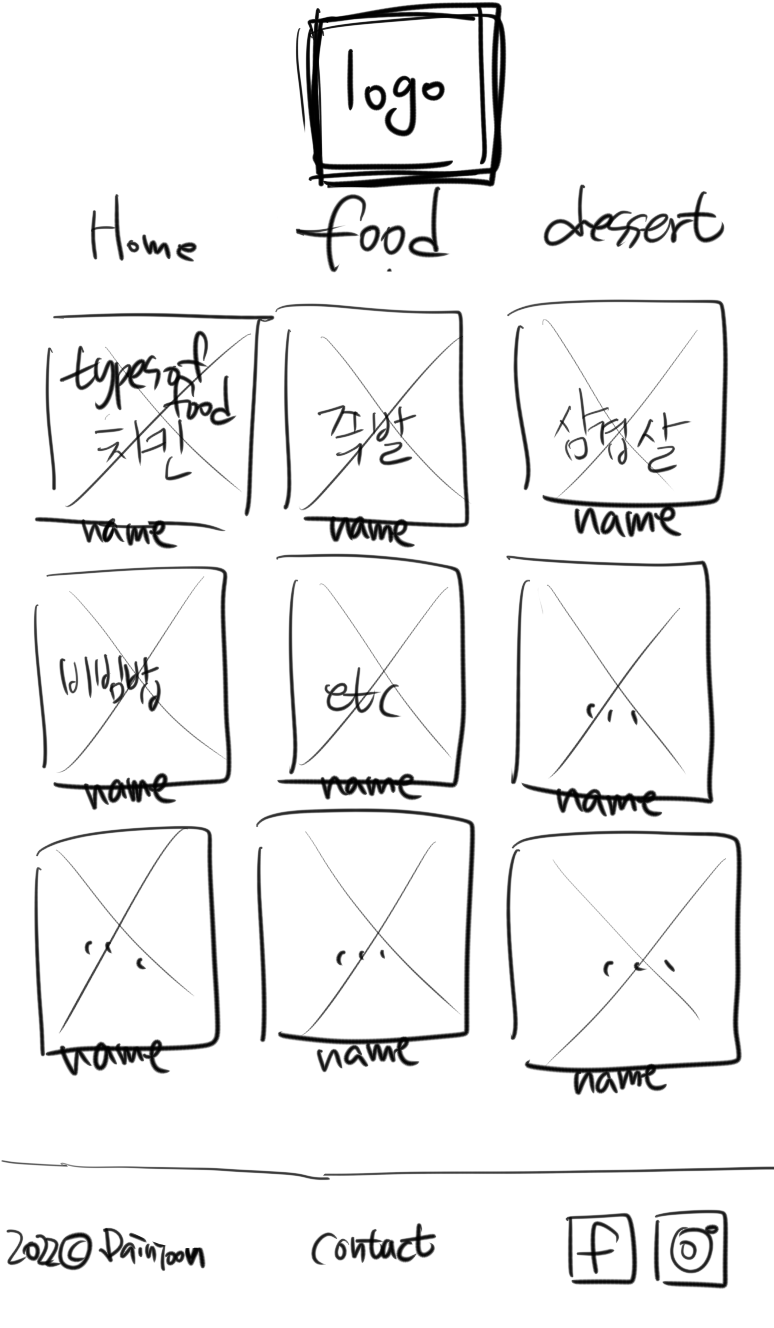 logo
Home food dessert
types of
food
치킨 족발 삼겹살
name name name
비빔밥 etc ...
name name name
... ... ...
name name name
2022© Dainjoon contact f